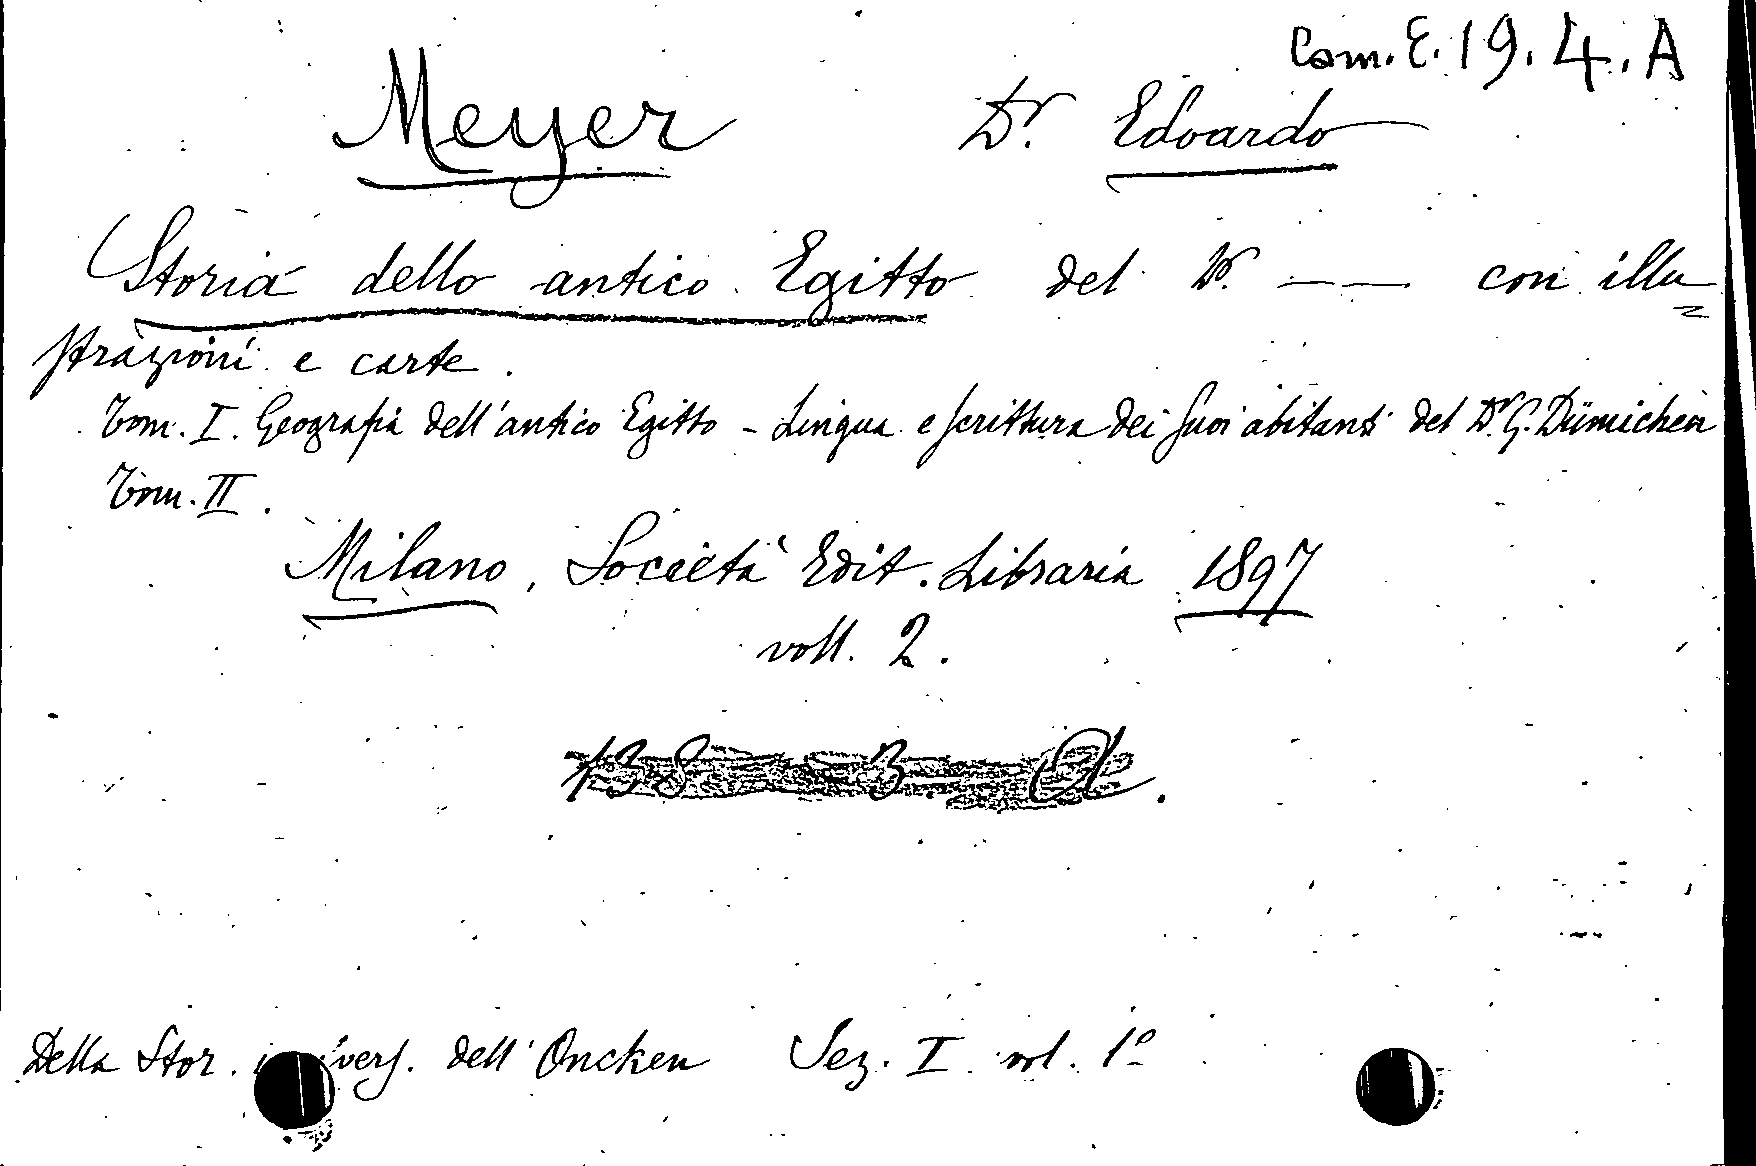 Cam. E. 19. 4. A
Meyer Dr. Edoardo
Storia dello antico Egitto del Dr. —— con illu=
strazioni e carte.
Tom. I. Geografia dell'antico Egitto - Lingua e scrittura dei suoi abitanti del Dr. G. Dümichen
Tom. II.
Milano, Società Edit. Libraria 1897
voll. 2.
138 3 A.
Della Stor. vers. dell'Oncken Sez. I vol. 1º